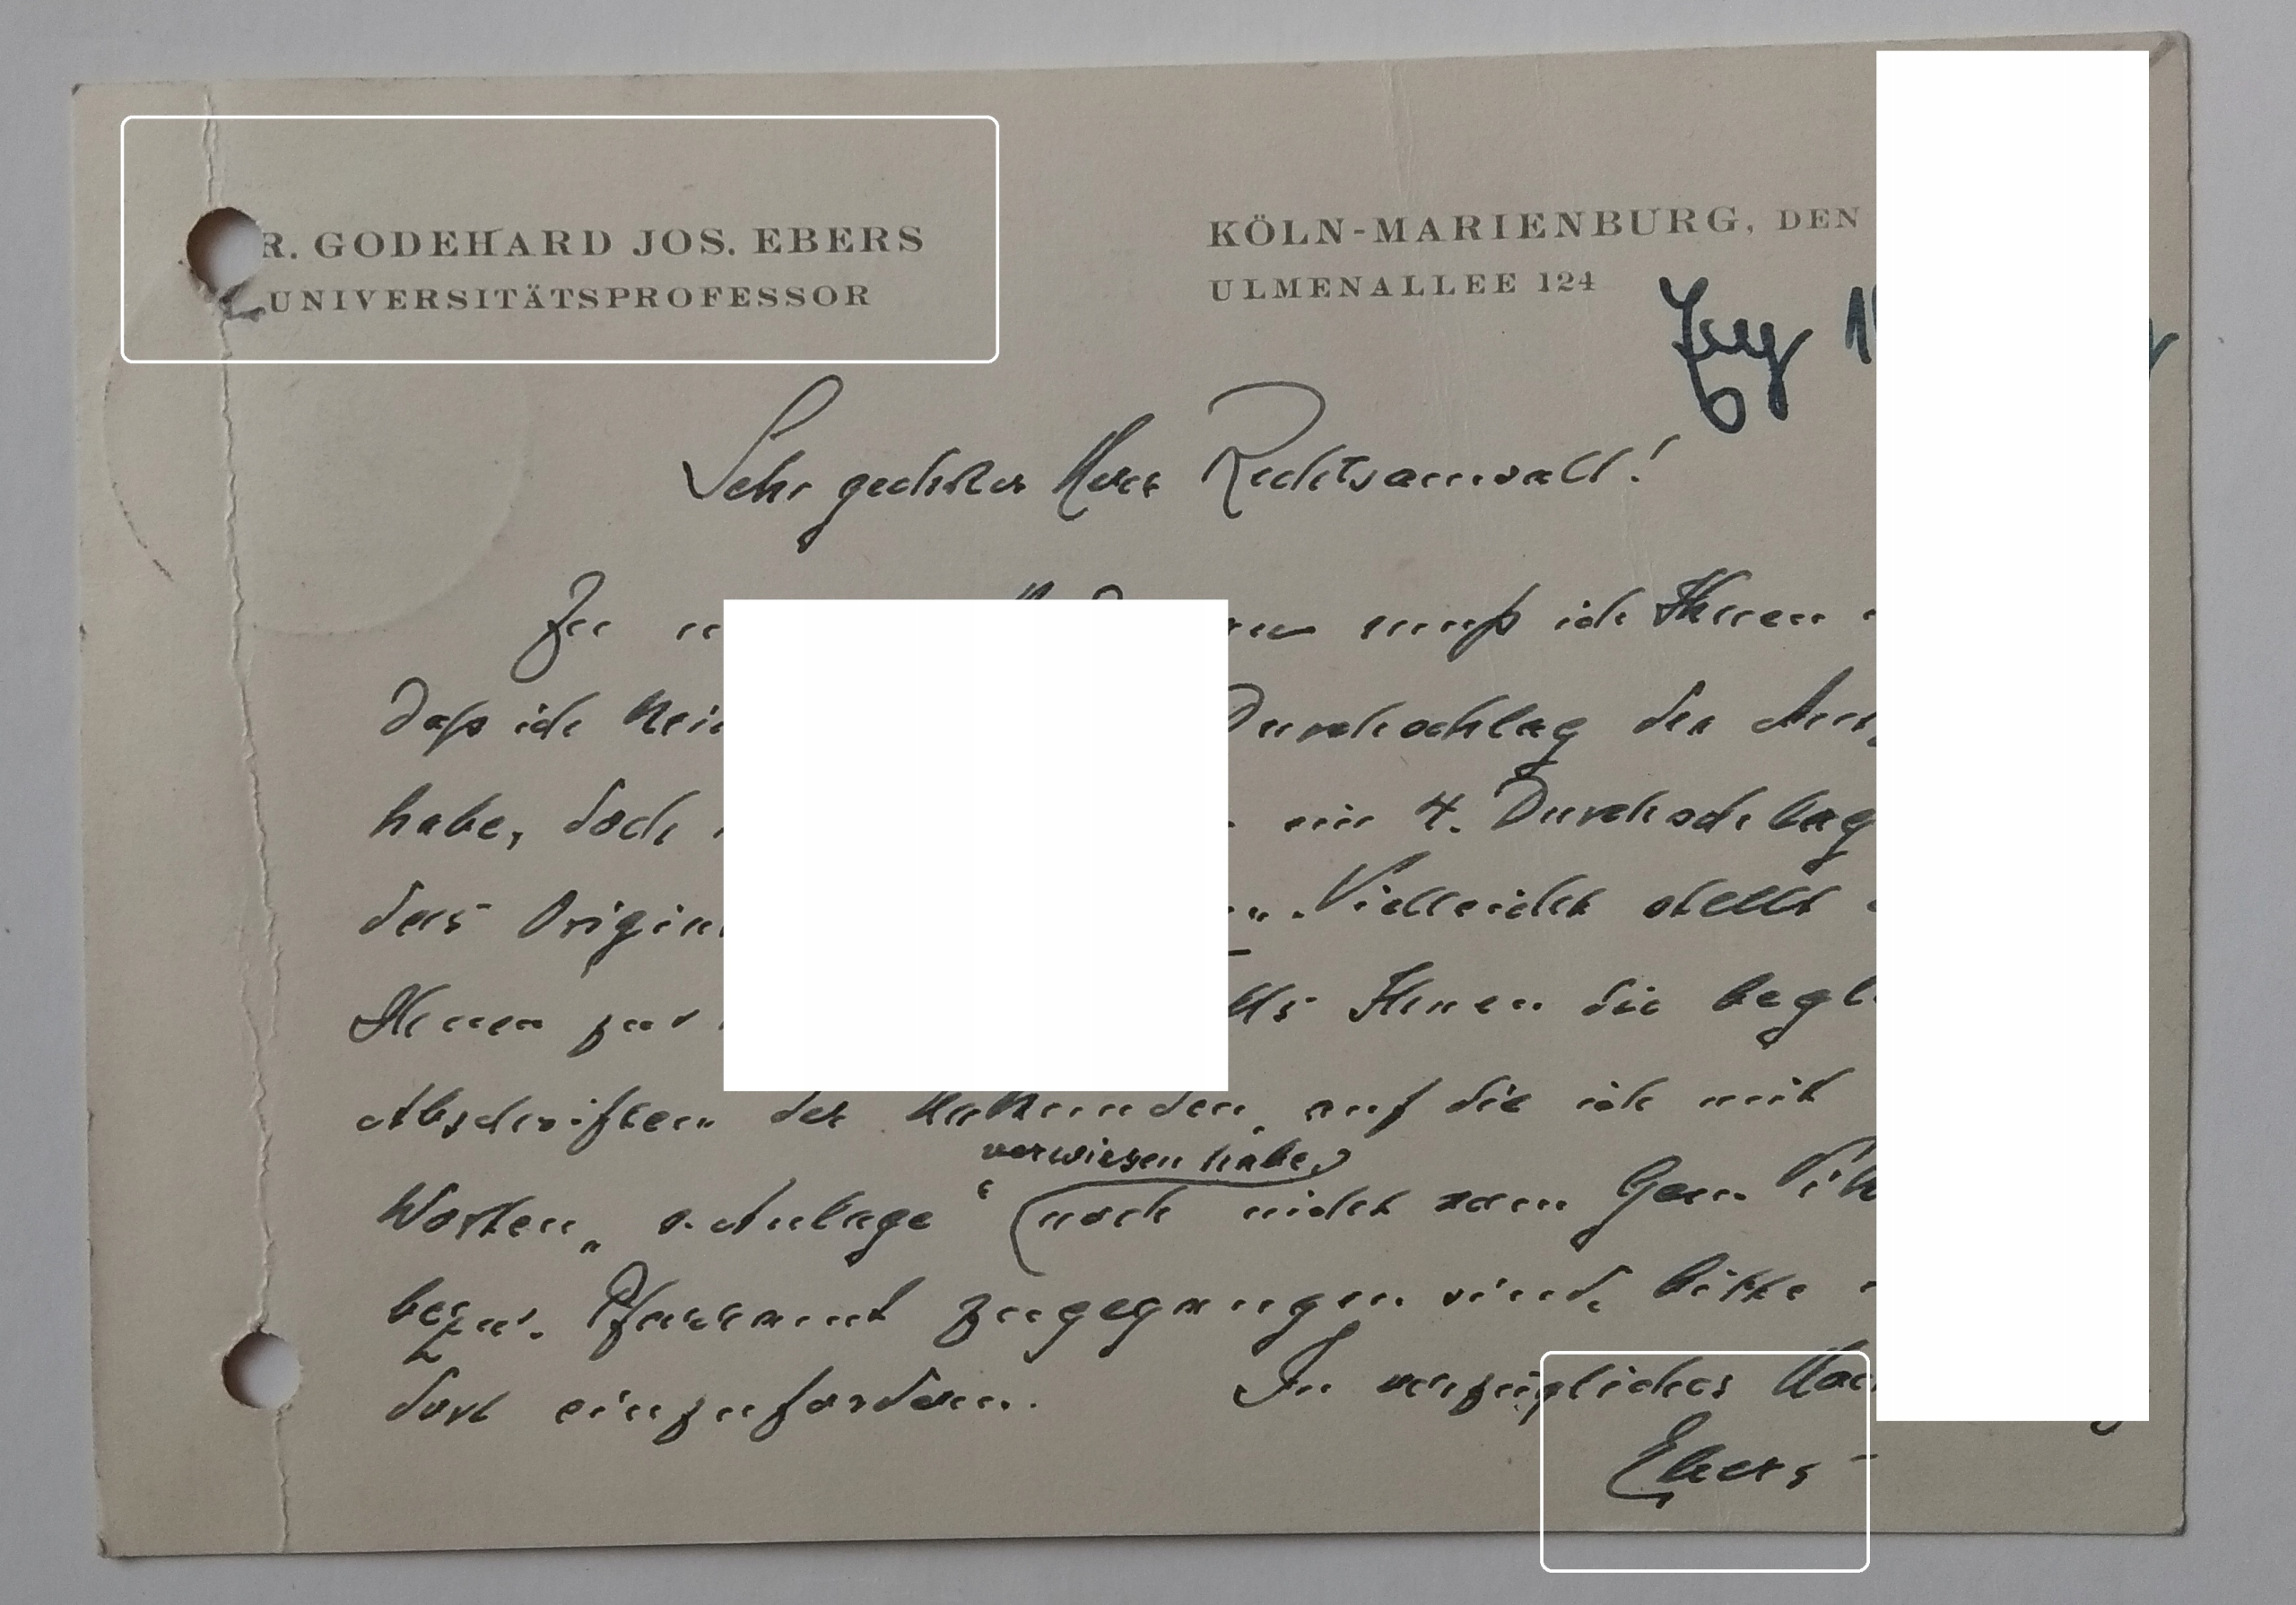 R. GODEHARD JOS. EBERS
UNIVERSITÄTSPROFESSOR
KÖLN-MARIENBURG, DEN
ULMENALLEE 124
Sehr geehrter Herr Rechtsanwalt!
Zu muß ich Ihnen
daß ich Durchschlag der
habe, doch ein 4. Durchschlag
das Vielleicht stellt
Ihnen zur Ihnen die
Abschriften der Urkunden, auf die ich mit
verwiesen habe,
Worten „s. Anlage“ noch nicht vom Gen.
bezw. Pfarramt zugegangen sind, bitte
dort einzufordern. In vorzüglicher
Ebers